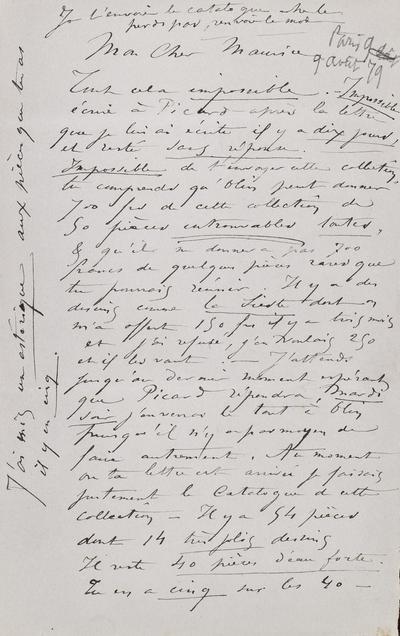 Je t'envoie le catalogue ne le
perds pas, renvoie le moi
Paris
9 août 79
Mon cher Maurice
Tout cela impossible. Impossible
écrire à Picard après la lettre
que je lui ai écrite il y a dix jours,
et resté sans réponse.
Impossible de t'envoyer cette collection,
tu comprends qu'blin peut donner
700 frs de cette collection de
50 pièces introuvables toutes,
& qu'il ne donnera pas 700
francs de quelques pièces rares que
tu pourrais réunir. Il y a des
dessins comme la Sieste dont on
m'a offert 150 frs il y a trois mois
et j'ai refusé, j'en voulais 250
et il les vaut — J'attends
jusqu'au dernier moment espérant
que Picard répondra, mardi
soir j'enverrai le tout à blin
puisqu'il n'y a pas moyen de
faire autrement. Au moment
où ta lettre est arrivée je faisais
justement le Catalogue de cette
collection — Il y a 54 pièces
dont 14 très jolis dessins
Il reste 40 pièces d'eau forte.
Tu en a cinq sur les 40 —
J'ai mis un astérisque aux pièces que tu as
il y en cinq.